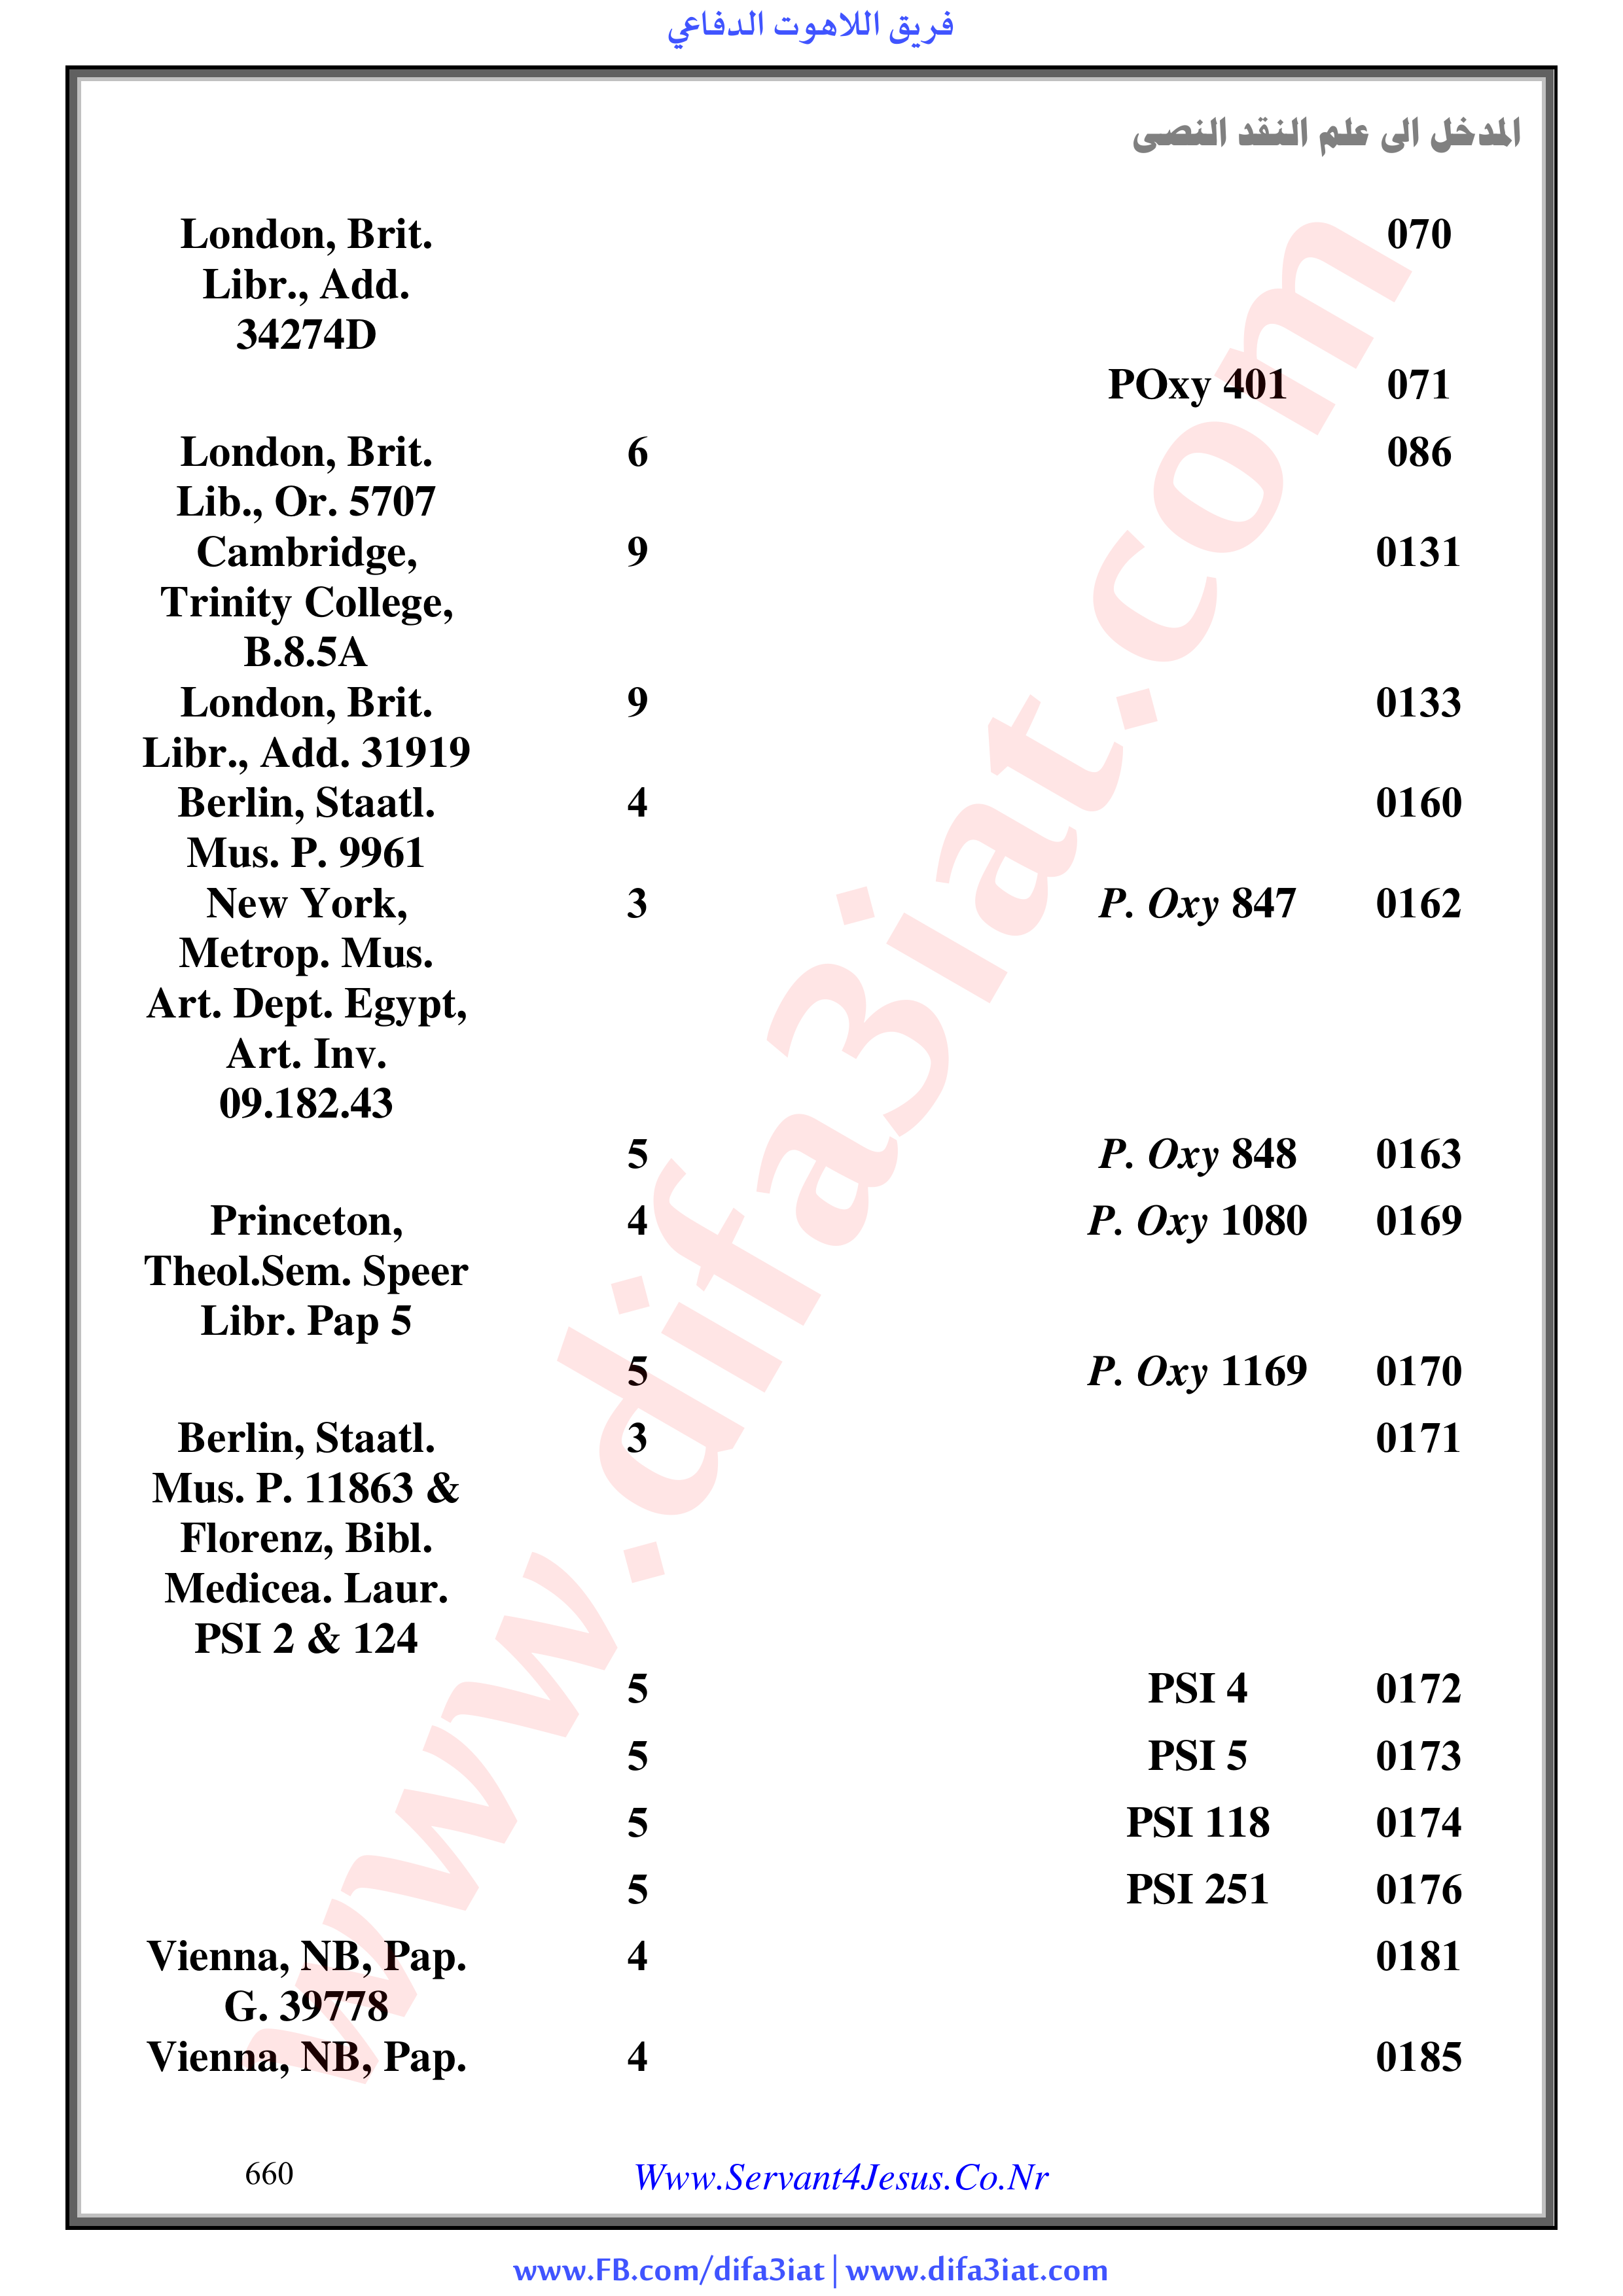 فريق اللاهوت الدفاعي
المدخل الى علم النقد النصى
070 London, Brit.
Libr., Add.
34274D
071 POxy 401
086 6 London, Brit.
Lib., Or. 5707
0131 9 Cambridge,
Trinity College,
B.8.5A
0133 9 London, Brit.
Libr., Add. 31919
0160 4 Berlin, Staatl.
Mus. P. 9961
0162 P. Oxy 847 3 New York,
Metrop. Mus.
Art. Dept. Egypt,
Art. Inv.
09.182.43
0163 P. Oxy 848 5
0169 P. Oxy 1080 4 Princeton,
Theol.Sem. Speer
Libr. Pap 5
0170 P. Oxy 1169 5
0171 3 Berlin, Staatl.
Mus. P. 11863 &
Florenz, Bibl.
Medicea. Laur.
PSI 2 & 124
0172 PSI 4 5
0173 PSI 5 5
0174 PSI 118 5
0176 PSI 251 5
0181 4 Vienna, NB, Pap.
G. 39778
0185 4 Vienna, NB, Pap.
www.difa3iat.com
660 Www.Servant4Jesus.Co.Nr
www.FB.com/difa3iat | www.difa3iat.com